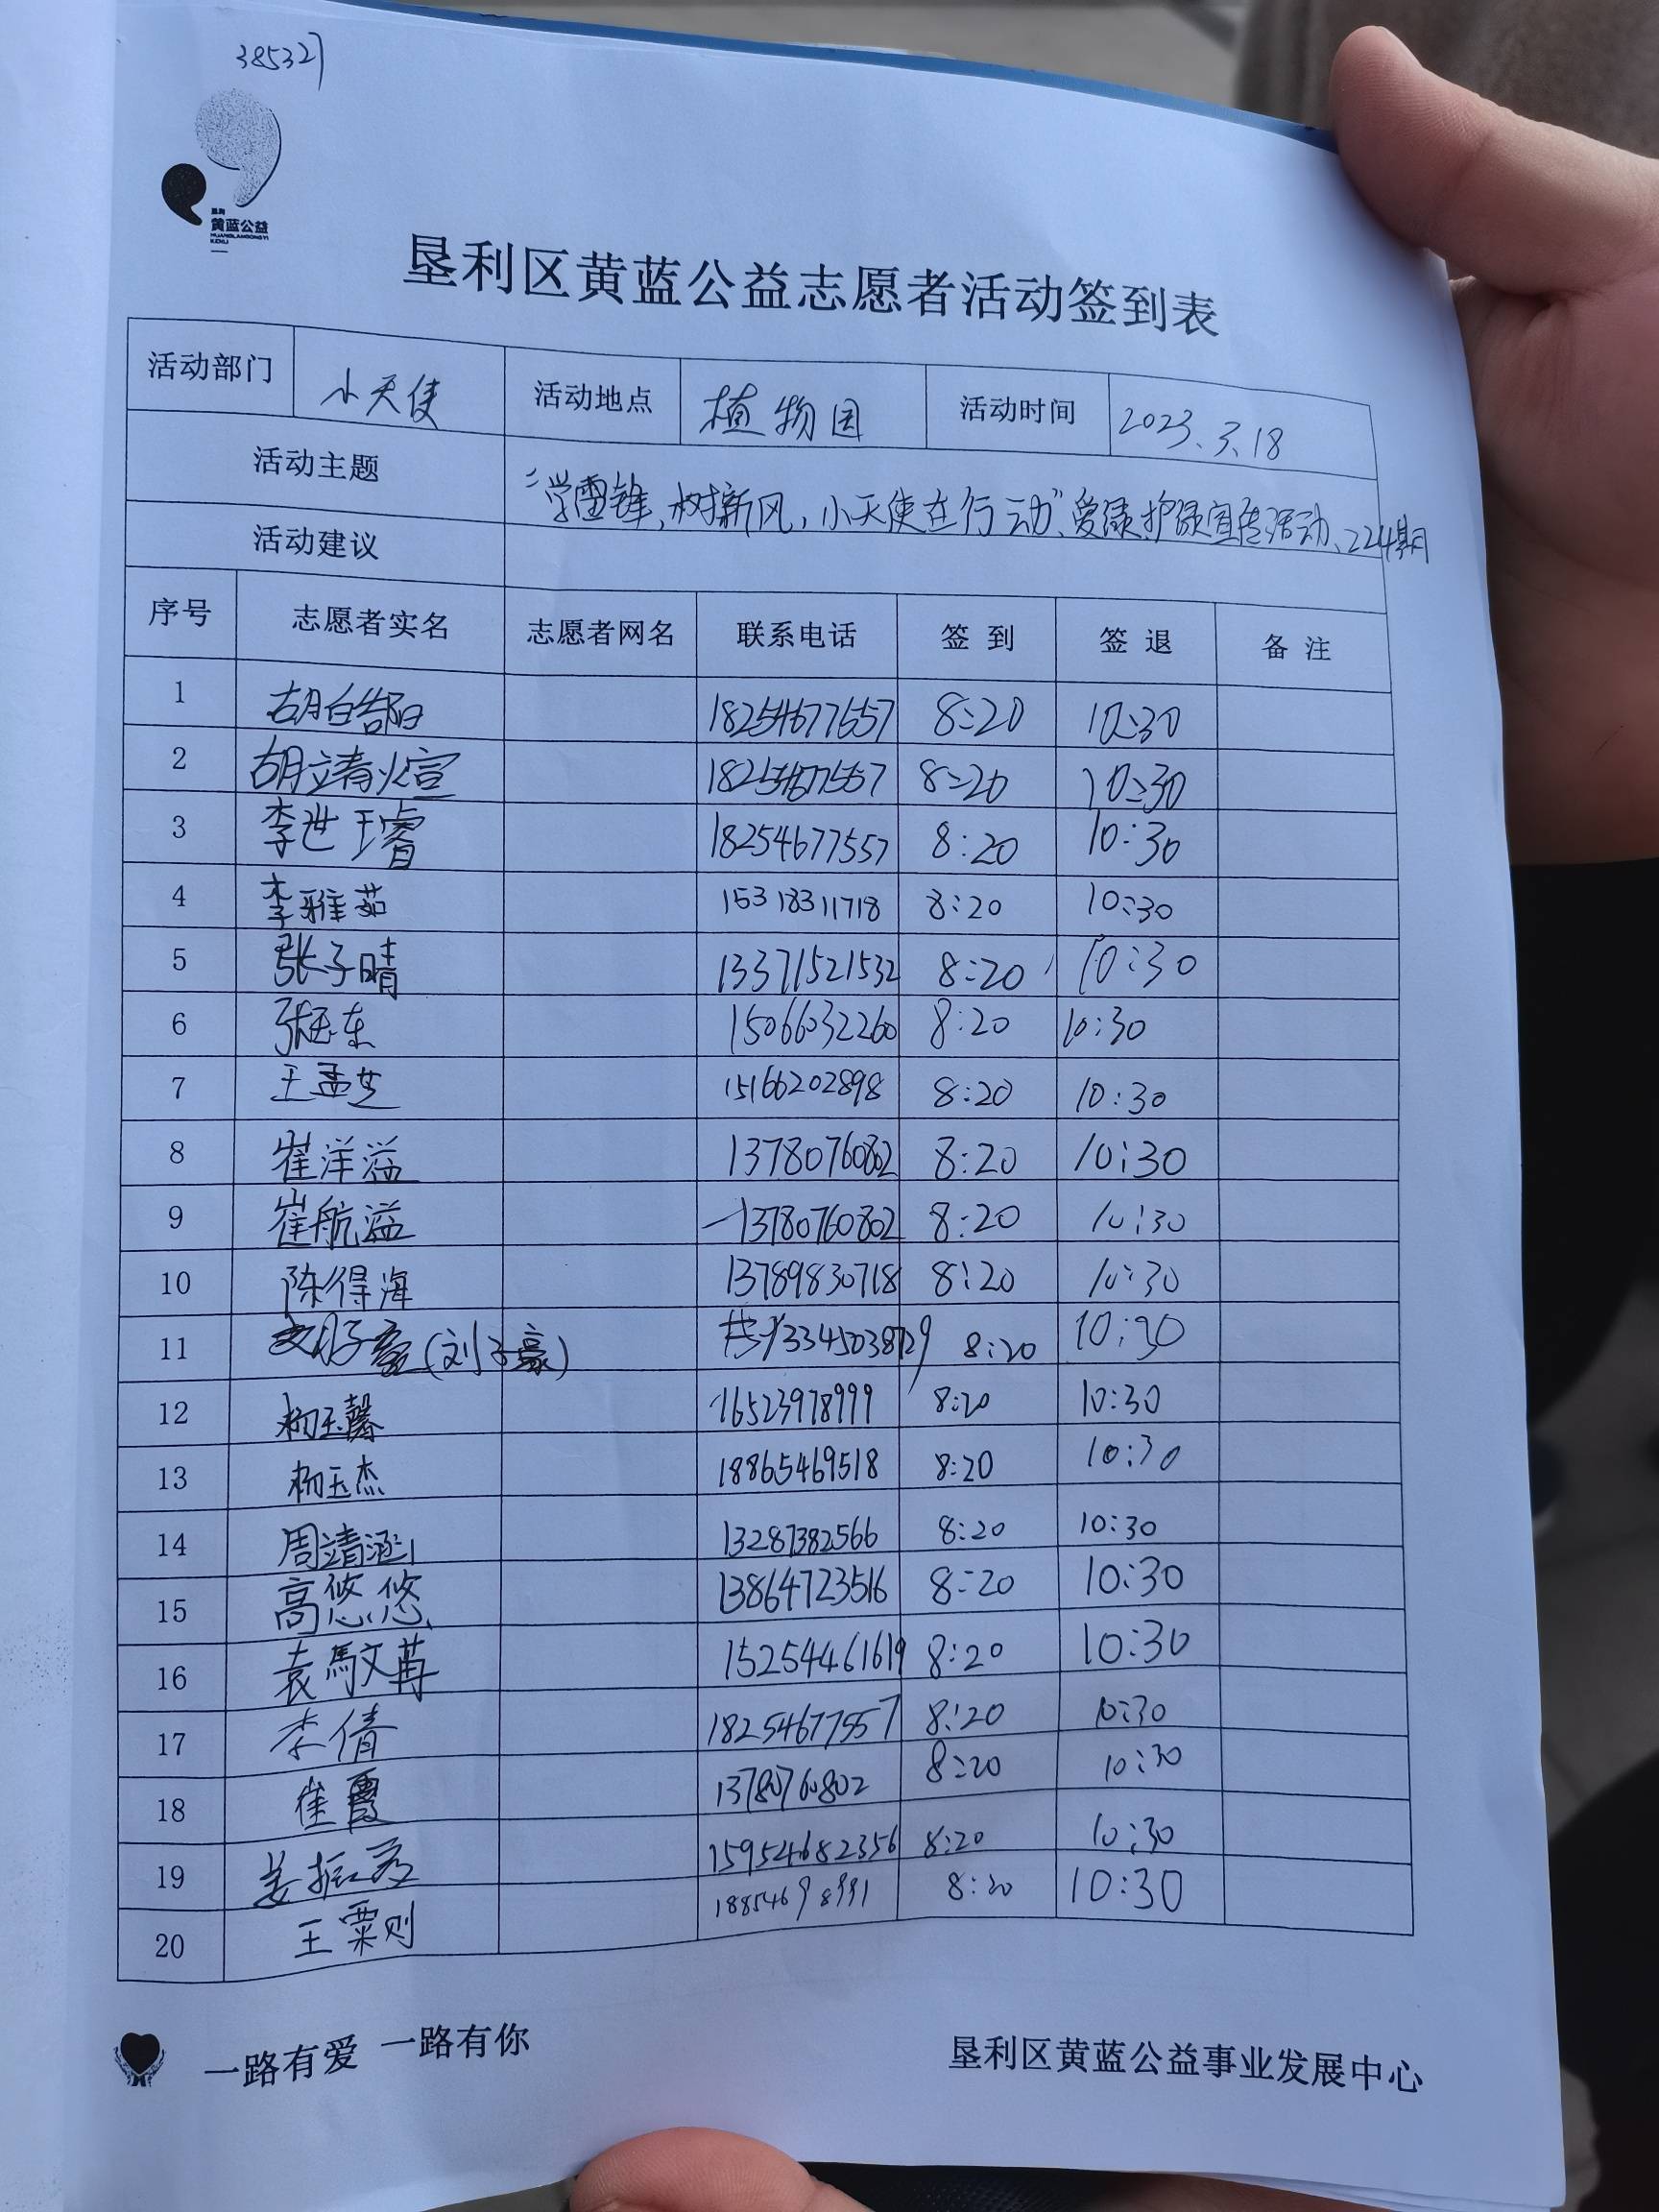 385327
垦利
黄蓝公益
HUANGLANGONGYI
KENLI
垦利区黄蓝公益志愿者活动签到表
活动部门 小天使 活动地点 植物园 活动时间 2023.3.18
活动主题 "学雷锋,树新风,小天使在行动"、爱绿护绿宣传活动、224期
活动建议
序号 志愿者实名 志愿者网名 联系电话 签到 签退 备注
1 8:20 10:30
2 8:20 10:30
3 李世 18254677557 8:20 10:30
4 李雅茹 15318311718 8:20 10:30
5 张子晴 13371521532 8:20 10:30
6 15066032260 8:20 10:30
7 王孟芝 15166202898 8:20 10:30
8 崔洋溢 13780760802 8:20 10:30
9 崔航溢 13780760802 8:20 10:30
10 陈得海 13789830718 8:20 10:30
11 (刘子豪) 8:20 10:30
12 柳玉馨 8:20 10:30
13 柳玉杰 18865469518 8:20 10:30
14 周靖涵 13287382566 8:20 10:30
15 高悠悠 13864723516 8:20 10:30
16 袁 15254461619 8:20 10:30
17 李倩 18254677557 8:20 10:30
18 崔霞 13780760802 8:20 10:30
19 姜 15954682356 8:20 10:30
20 王粟则 8:20 10:30
一路有爱 一路有你
垦利区黄蓝公益事业发展中心